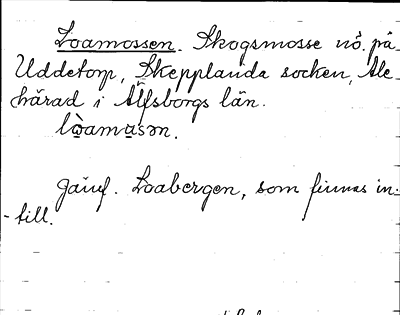 Loamossen. Skogsmosse nö. på
Uddetorp, Skepplanda socken, Ale
härad i Älfsborgs län.
lòamusən.
Jämf. Loabergen, som finnas in-
-till.